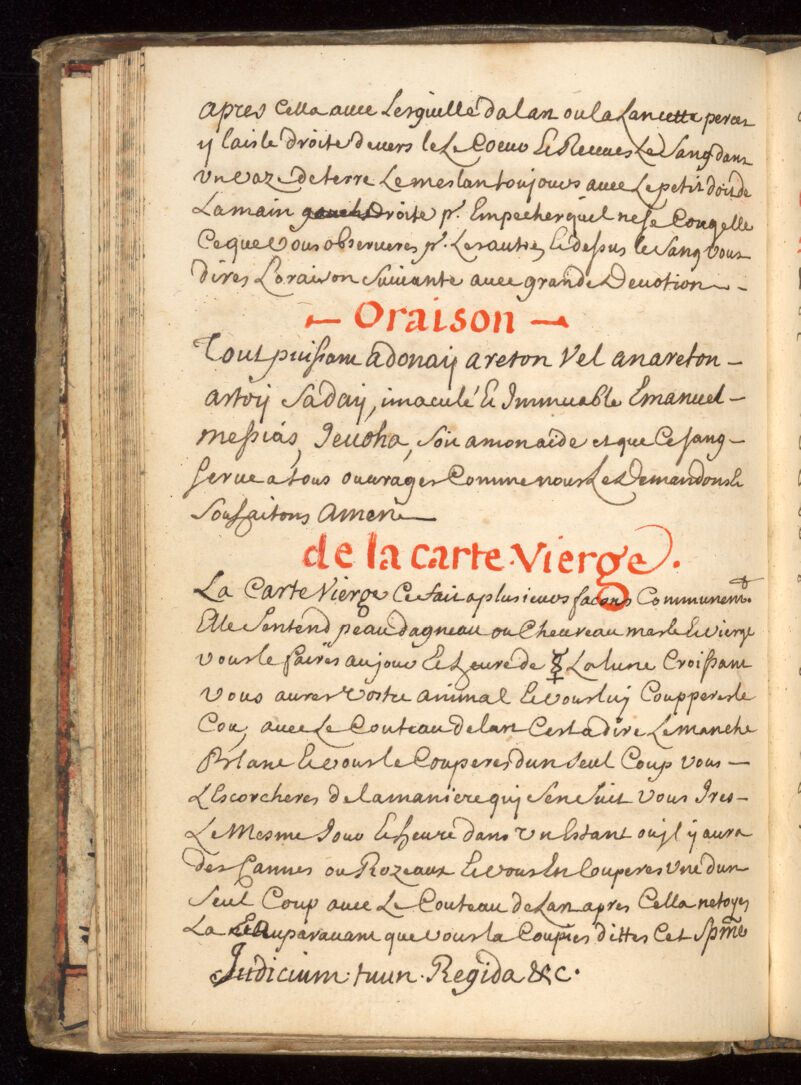 apres Cella avec Lesguille dalart ou la Lancette perces
y laisle droite devers le Le Coeur Et Receves Le Sang dans
vn vaze de terre Le meslan toujours avec Le petit doit de
La main gauche Droite pr. Empecher quil ne se Congelle
Ce que Vous observeres pr. Les autres Et dessus le Sang vous
dires Loraison Suivante avec grande Devotion
Oraison
Tout puissant adonaij areton Vel anareton
artoij Sadaij, imaculé Et Immuable Emanuel
messias, Jeuoha, soit a mon aide et que Ce sang
serve a tous ouvrages Comme nous Le Demandons Et
Souhaitons Amen
de la carte Vierge.
La Carte Vierge Ce fait a plusieurs facons Communemt.
Elle Sentend peau dagneau ou Cheureau masle Et vierge
vous le faires au jour Et heure de ☿ La lune Croissant
Vous aures Vostre animal Et vous luij Coupperes le
Cou, avec Le Couteau de lart Cest a dire Le manche
Blanc Et vous le Couperes dun Seul Coup vous
LEscorcheres de la maniere quij Sensuit Vous Ires
Le Mesme Jour Et heure dans vn Estant ou jl y aura
des Cannes ou Rozeaux Et vous En Couperes Vne dun
Seul Coup avec Le Couteau de Lart apres Cella netoyes
La Auparavant que vous la Coupies dittes Cet Spme
Judicium tuun Regida &c.